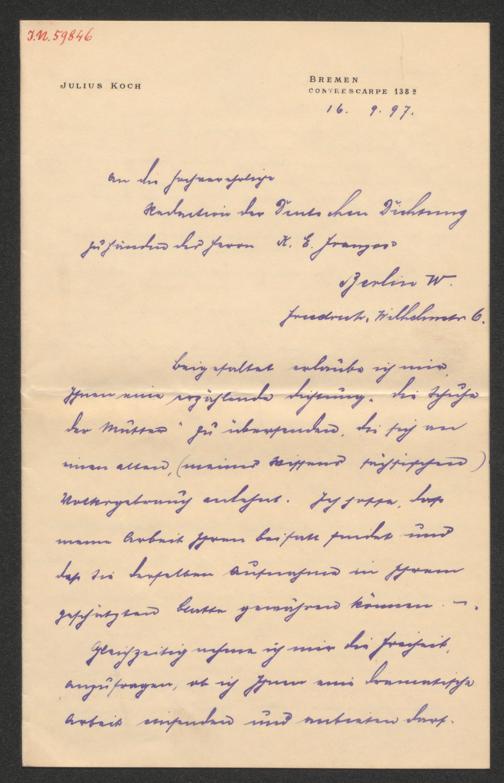 I.N. 59846
JULIUS KOCH
BREMEN
CONTRESCARPE 138
16. 9. 97.
An die hochverehrliche
Redaction der Deutschen Dichtung
zu Händen des Herrn K. E. Franzos
Berlin W.
Friedrich-Wilhelmstr 6.
Beigefaltet erlaube ich mir,
Ihnen eine erzählende Dichtung „Die Schuhe
der Mutter" zu übersenden, die sich an
einen alten, (meines Wissens sächsischen)
Volksgebrauch anlehnt. Ich hoffe, daß
meine Arbeit Ihren Beifall findet und
daß Sie derselben Aufnahme in Ihrem
geschätzten Blatte gewähren können. —.
Gleichzeitig nehme ich mir die Freiheit,
anzufragen, ob ich Ihnen eine dramatische
Arbeit einsenden und anbieten darf.